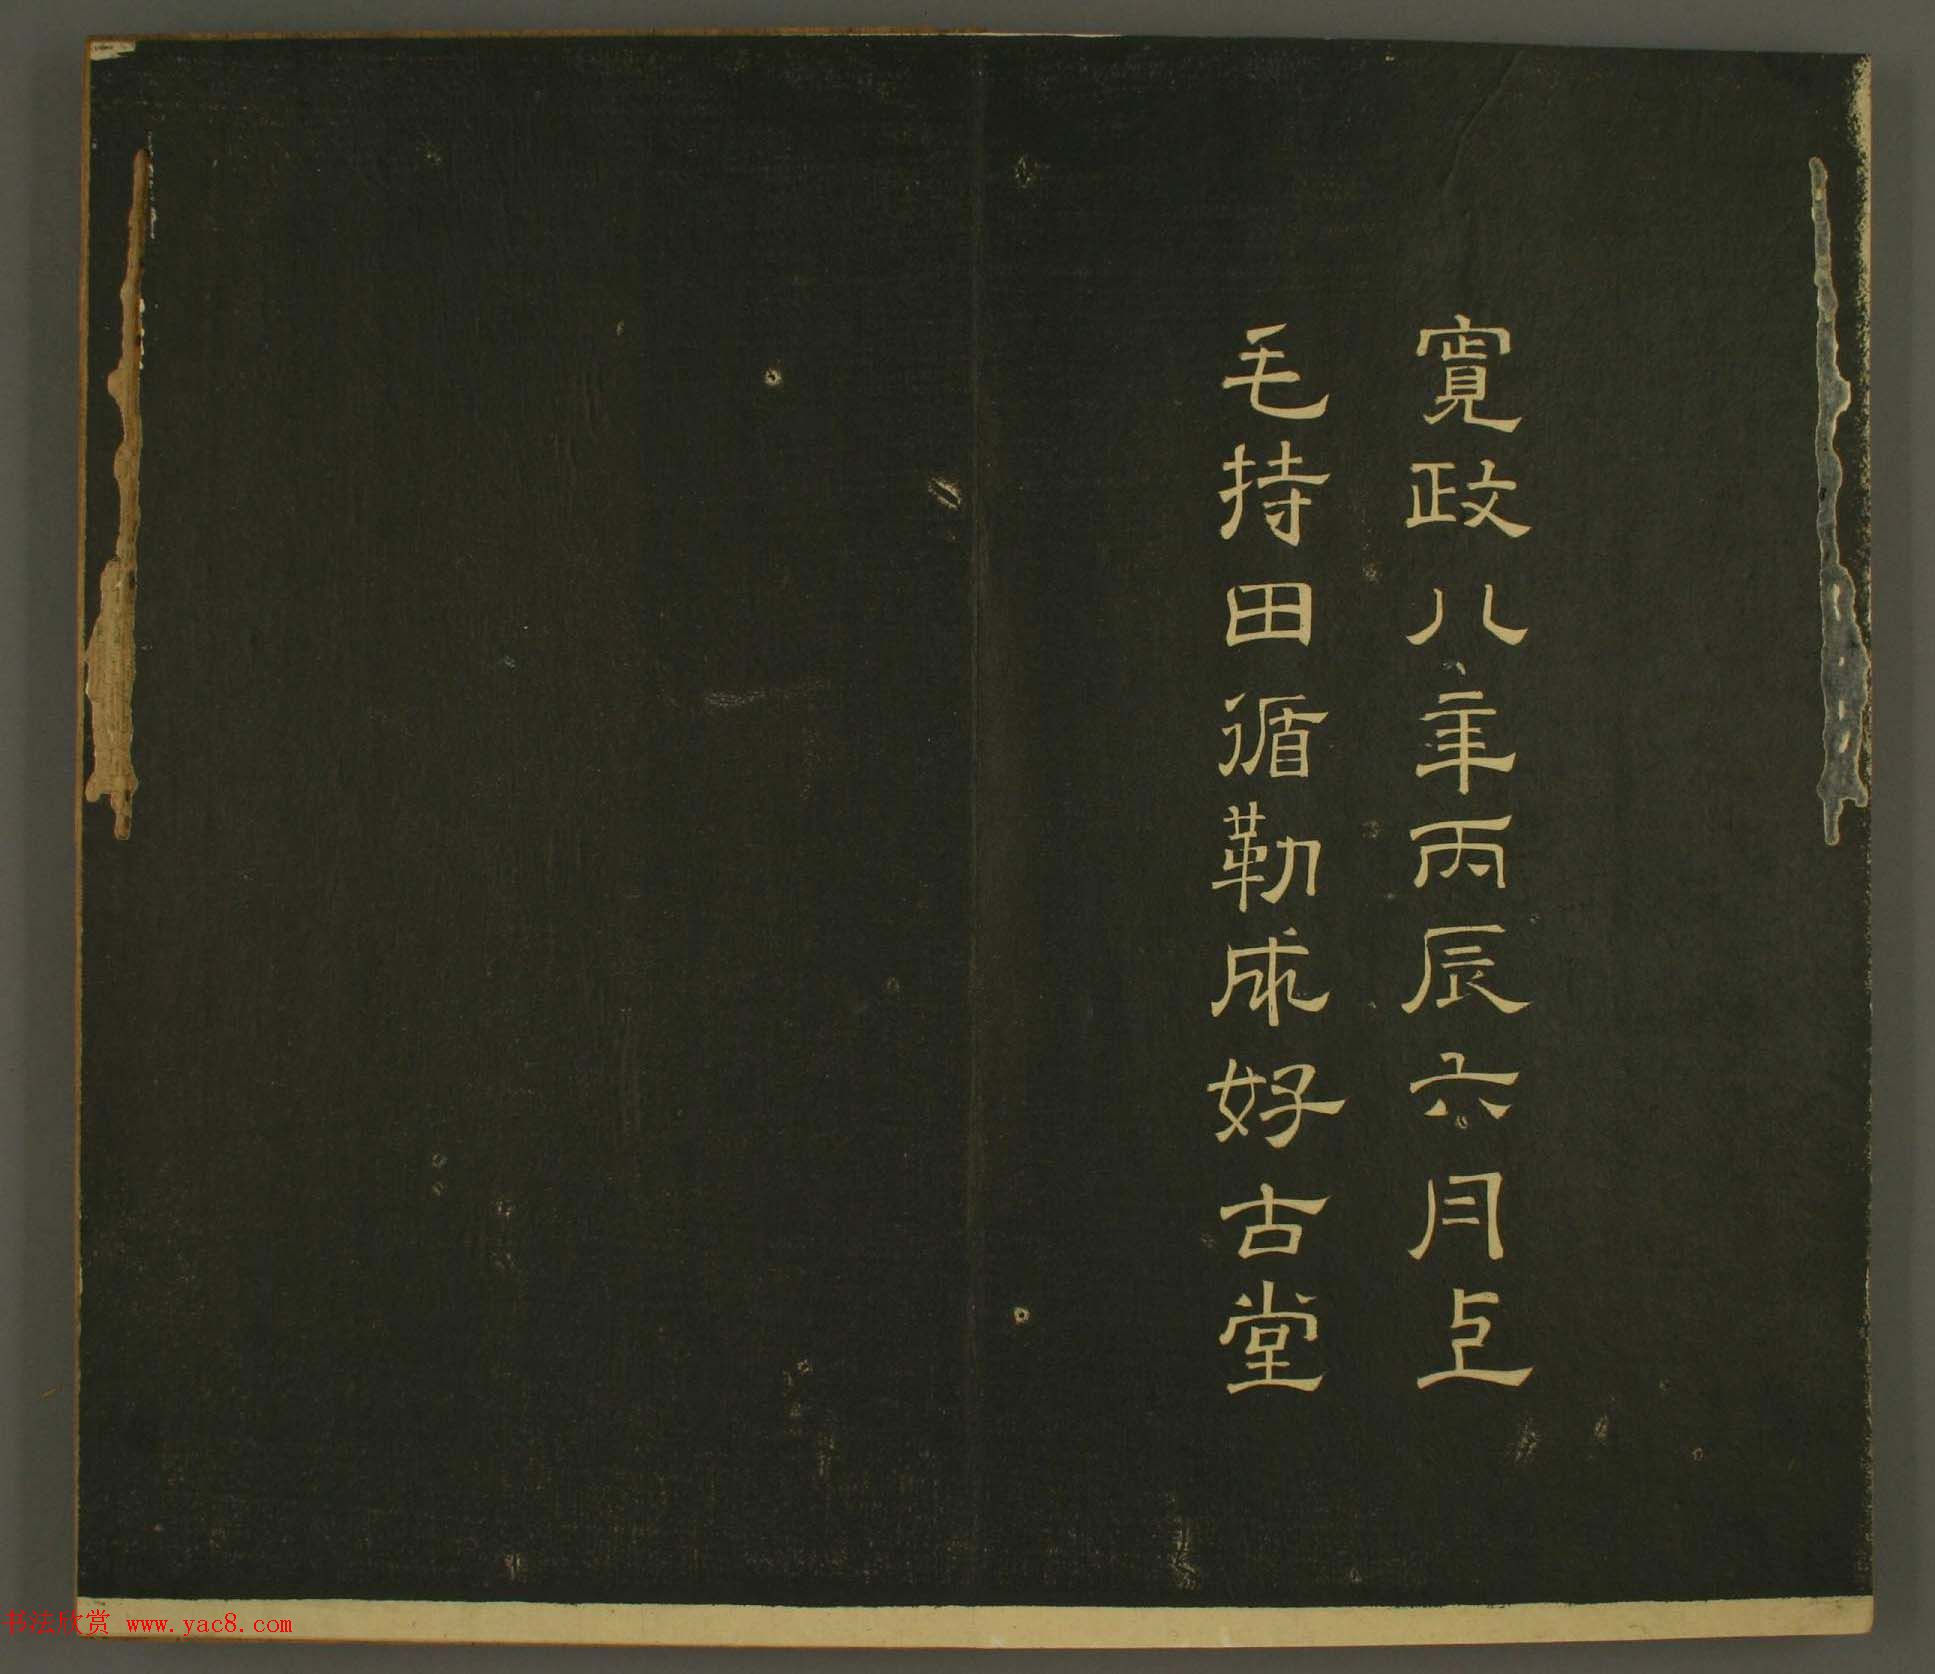 寬政八年丙辰六月上
毛持田循勒成好古堂
书法欣赏 www.yac8.com